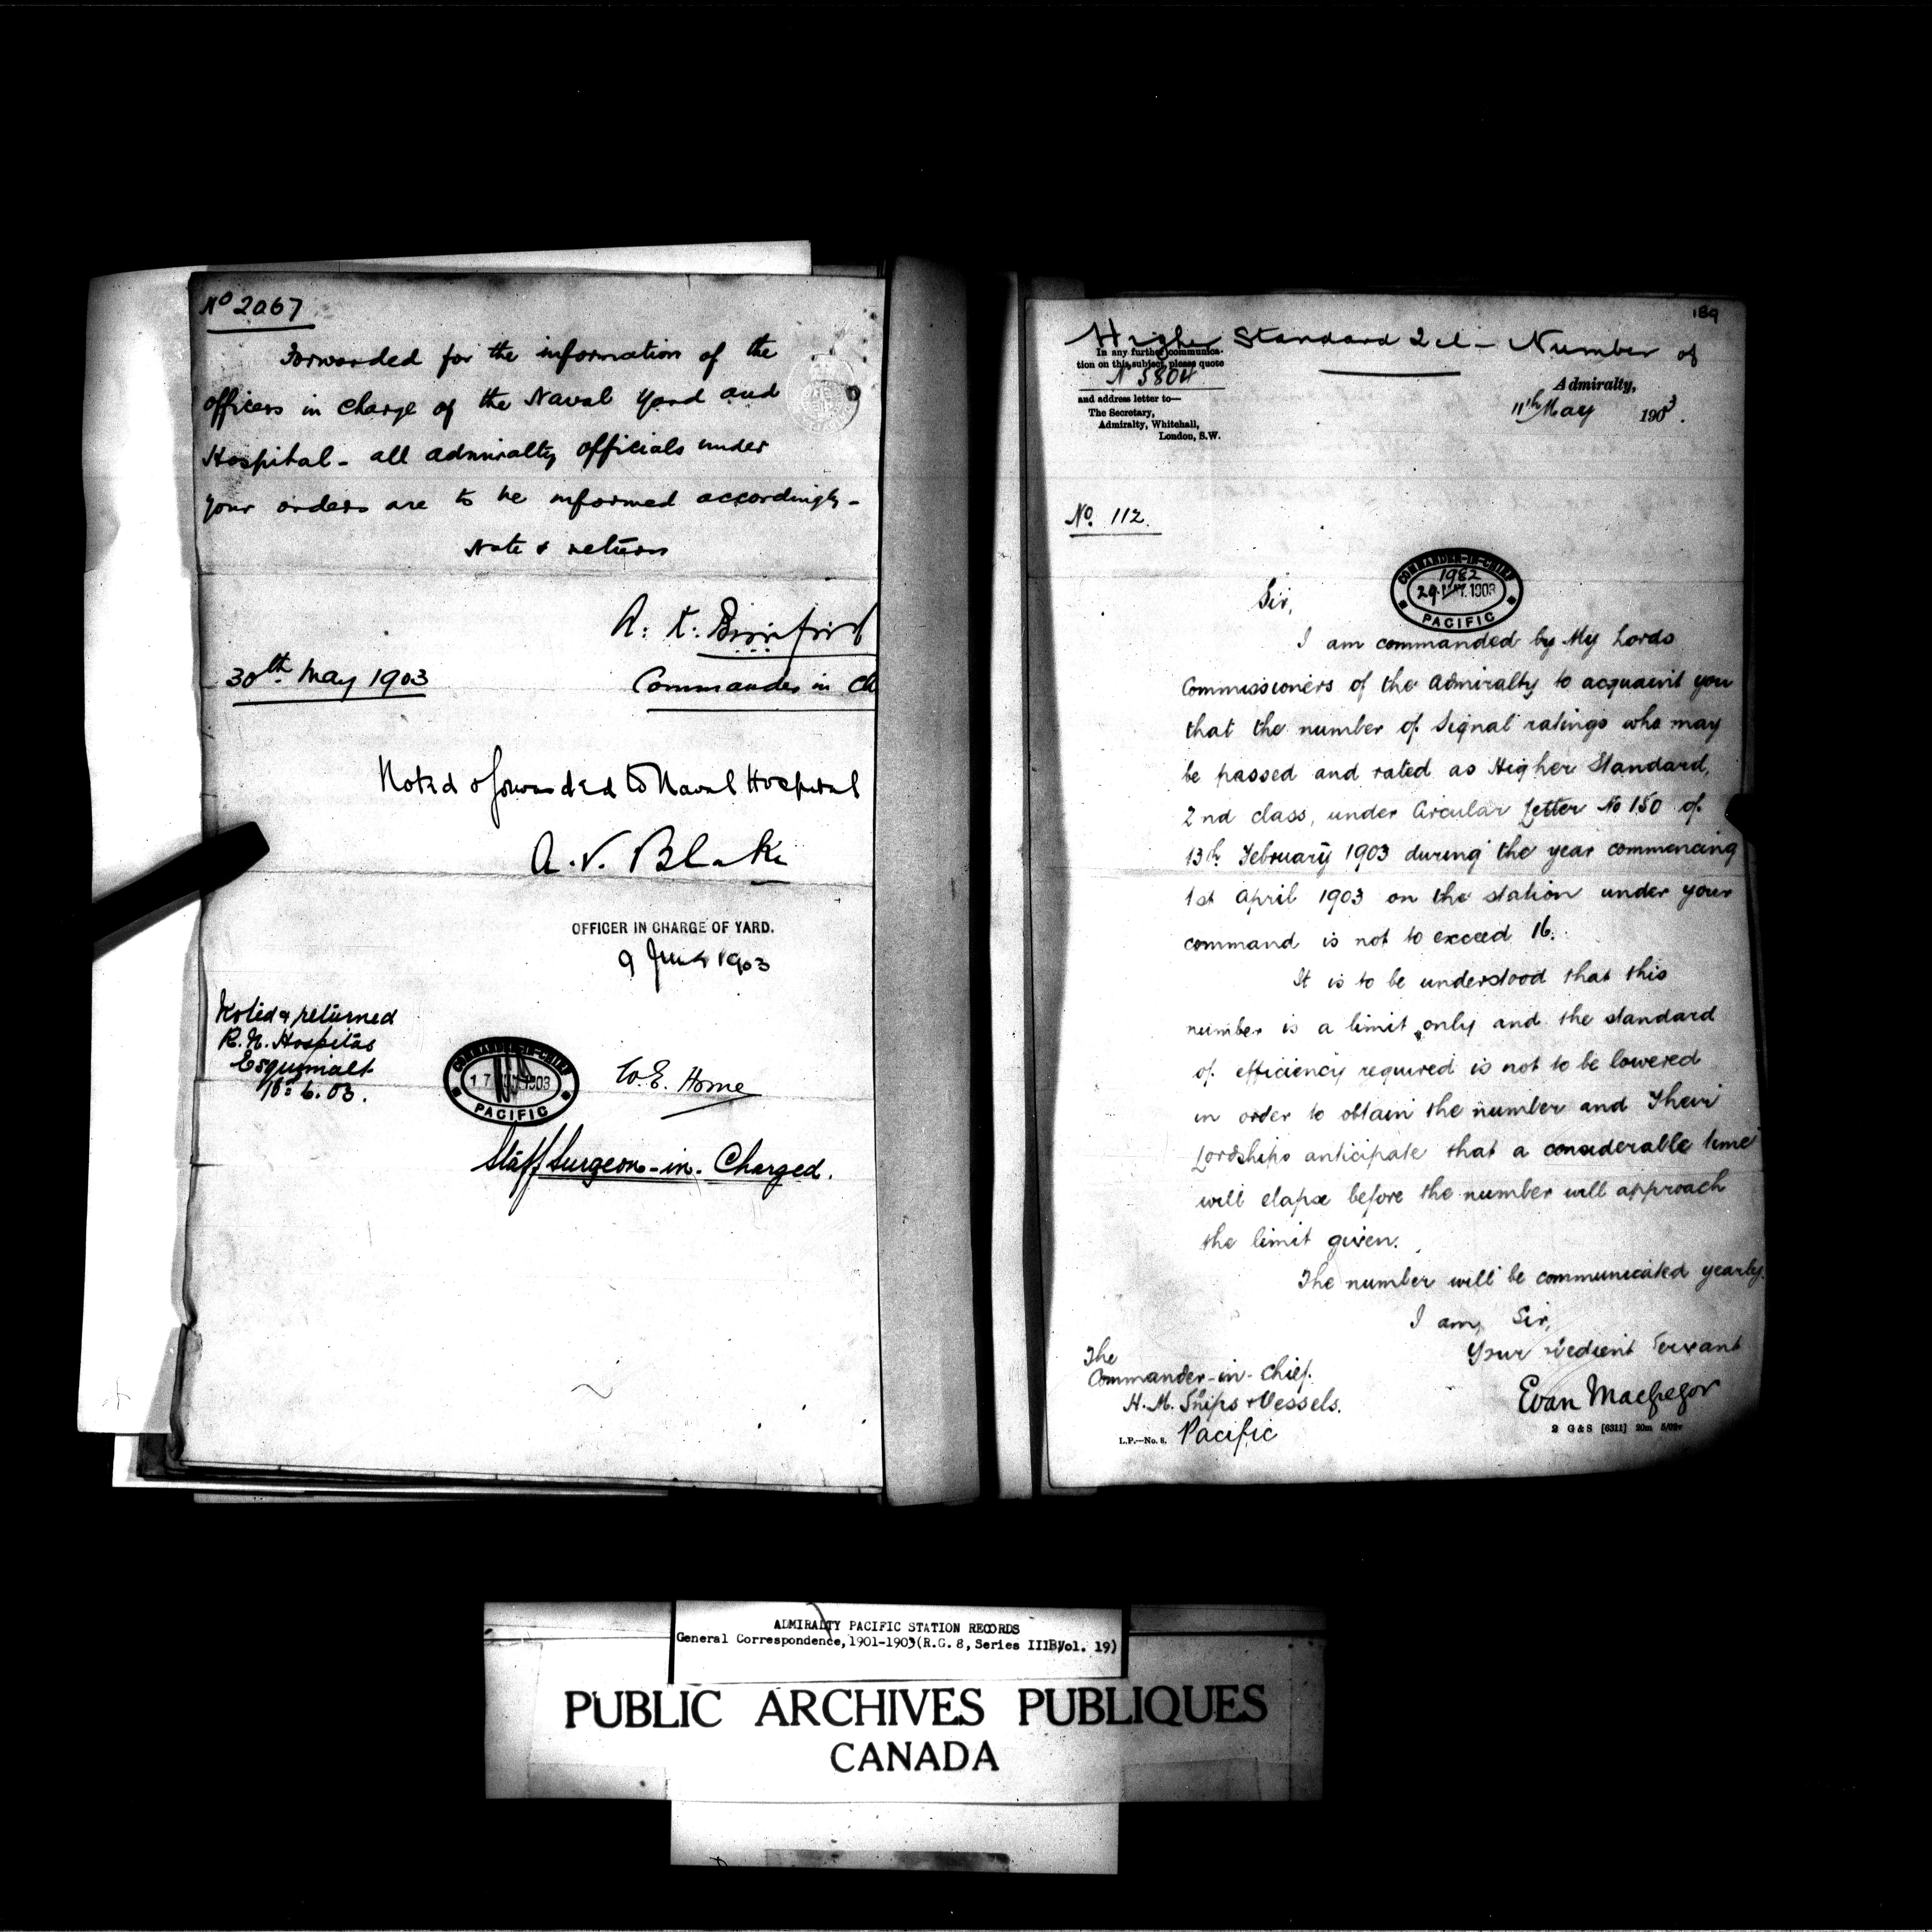 No 2067
Forwarded for the information of the
officers in charge of the Naval Yard and
Hospital - all admiralty officials under
your orders are to be informed accordingly -
Note & return
A. K. Bickford
30th May 1903
Commander in Ch
Noted & forwarded to Naval Hospital
A. V. Blake
OFFICER IN CHARGE OF YARD.
9 June 1903
Noted & returned
R. N. Hospital
Esquimalt
10.6.03.
COMMANDER-IN-CHIEF
17 1903
PACIFIC
W. E. Home
Staff Surgeon-in-Charged.
189
Higher Standard 2 cl - Number of
In any further communica-
tion on this subject, please quote
N 5804
and address letter to—
The Secretary,
Admiralty, Whitehall,
London, S.W.
Admiralty,
11th May 1903.
No. 112.
COMMANDER-IN-CHIEF
1982
29 MAY. 1903
PACIFIC
Sir,
I am commanded by My Lords
Commissioners of the Admiralty to acquaint you
that the number of Signal ratings who may
be passed and rated as Higher Standard,
2nd class, under Circular Letter No 150 of
13th February 1903 during the year commencing
1st April 1903 on the station under your
command is not to exceed 16.
It is to be understood that this
number is a limit only and the standard
of efficiency required is not to be lowered
in order to obtain the number and Their
Lordships anticipate that a considerable time
will elapse before the number will approach
the limit given.
The number will be communicated yearly.
I am, Sir,
Your obedient Servant
Evan MacGregor
The
Commander-in-Chief.
H. M. Ships & Vessels.
Pacific
L.P.—No. 8.
2 G & S [6311] 20m 5/02
ADMIRALTY PACIFIC STATION RECORDS
General Correspondence, 1901-1903 (R.G. 8, Series IIIB, Vol. 19)
PUBLIC ARCHIVES PUBLIQUES
CANADA